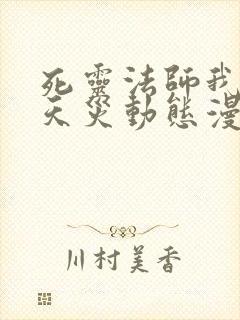 死靈法師我
天災動態漫
川村美香